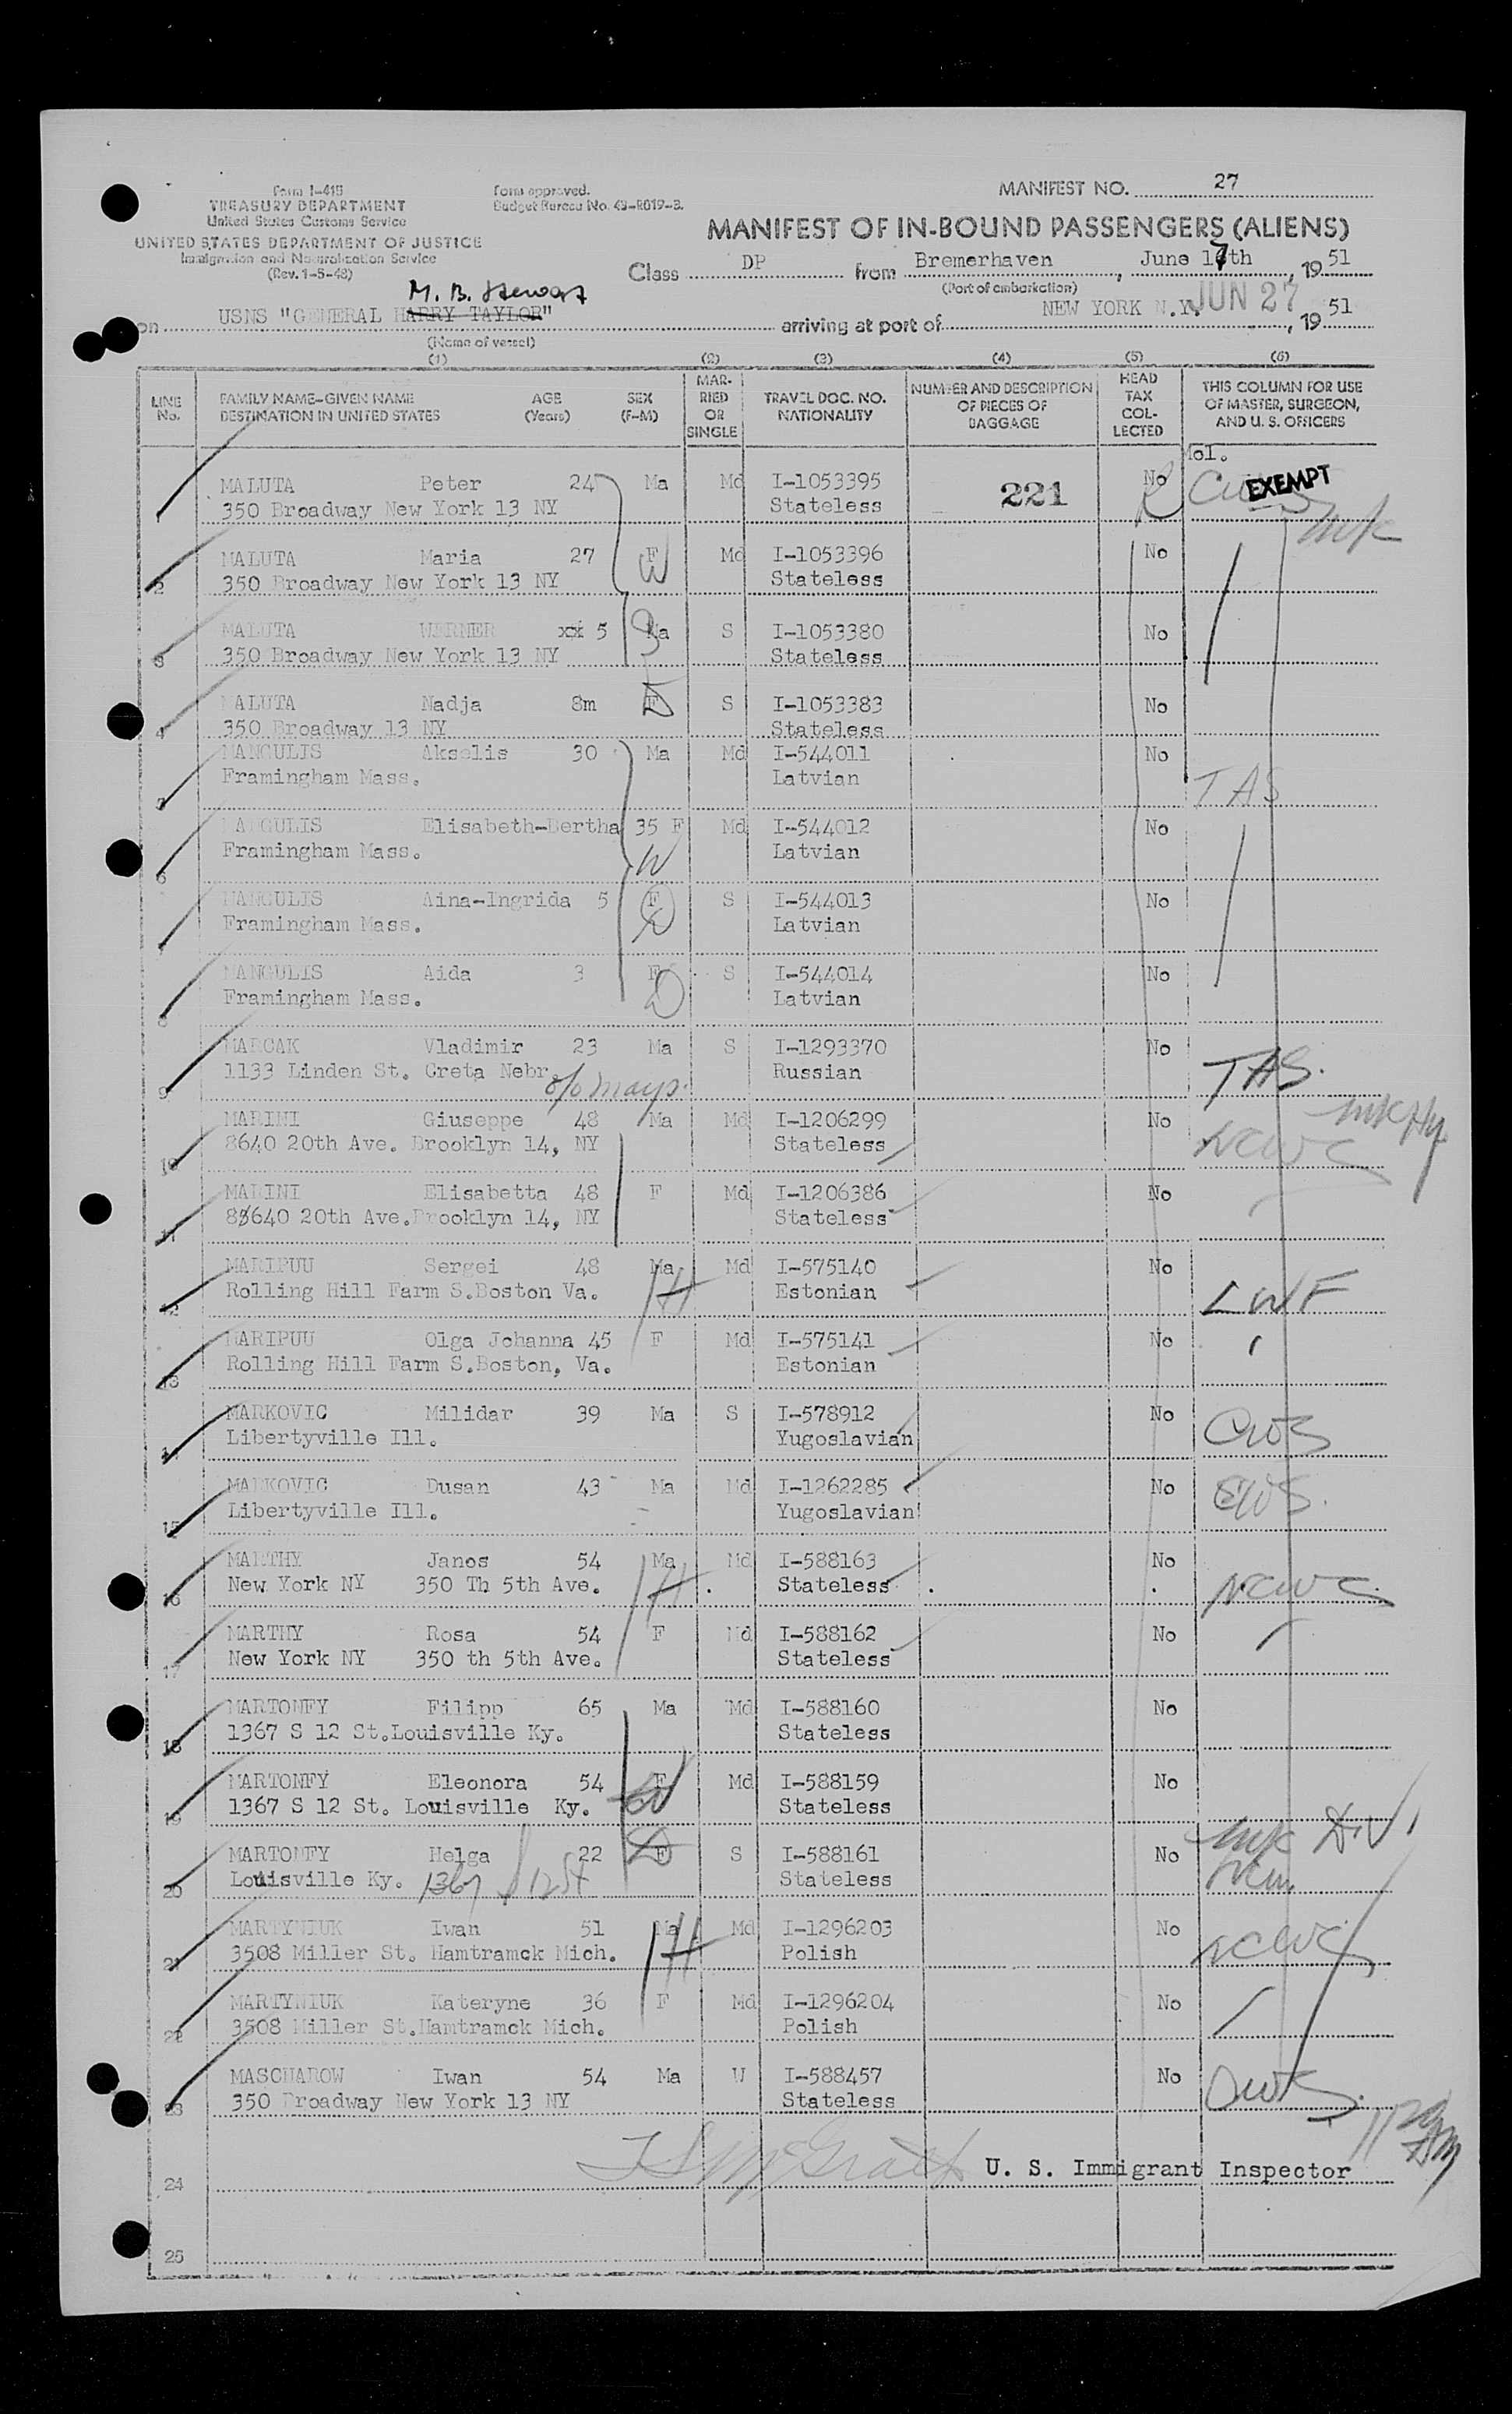 Form I-415
TREASURY DEPARTMENT
United States Customs Service
UNITED STATES DEPARTMENT OF JUSTICE
Immigration and Naturalization Service
(Rev. 1-5-48)
Form approved.
Budget Bureau No. 43-R019-3.
MANIFEST NO. 27
MANIFEST OF IN-BOUND PASSENGERS (ALIENS)
Class DP from Bremerhaven, June 17th, 1951
(Port of embarkation)
M. B. Stewart
on USNS "GENERAL HARRY TAYLOR" arriving at port of NEW YORK N.Y. JUN 27, 1951
(Name of vessel)
(1) (2) (3) (4) (5) (6)
LINE No. FAMILY NAME-GIVEN NAME DESTINATION IN UNITED STATES AGE (Years) SEX (F-M) MARRIED OR SINGLE TRAVEL DOC. NO. NATIONALITY NUMBER AND DESCRIPTION OF PIECES OF BAGGAGE HEAD TAX COLLECTED THIS COLUMN FOR USE OF MASTER, SURGEON, AND U. S. OFFICERS
MALUTA Peter 24 Ma Md I-1053395 221 No EXEMPT
1 350 Broadway New York 13 NY Stateless
MALUTA Maria 27 F Md I-1053396 No
2 350 Broadway New York 13 NY W Stateless
MALUTA WERNER xx 5 Ma S I-1053380 No
3 350 Broadway New York 13 NY Stateless
MALUTA Nadja 8m F S I-1053383 No
4 350 Broadway 13 NY Stateless
MANGULIS Akselis 30 Ma Md I-544011 No
5 Framingham Mass. Latvian TAS
MANGULIS Elisabeth-Bertha 35 F Md I-544012 No
6 Framingham Mass. W Latvian
MANGULIS Aina-Ingrida 5 F S I-544013 No
7 Framingham Mass. D Latvian
MANGULIS Aida 3 F S I-544014 No
8 Framingham Mass. D Latvian
MARCAK Vladimir 23 Ma S I-1293370 No
9 1133 Linden St. Creta Nebr. Russian TAS.
MARINI Giuseppe 48 Ma Md I-1206299 No
10 8640 20th Ave. Brooklyn 14, NY Stateless NCWC
MARINI Elisabetta 48 F Md I-1206386 No
11 88640 20th Ave.Brooklyn 14, NY Stateless
MARIPUU Sergei 48 Ma Md I-575140 No
12 Rolling Hill Farm S.Boston Va. H Estonian LWF
MARIPUU Olga Johanna 45 F Md I-575141 No
13 Rolling Hill Farm S.Boston, Va. Estonian
MARKOVIC Milidar 39 Ma S I-578912 No
14 Libertyville Ill. Yugoslavian CWS
MARKOVIC Dusan 43 Ma Md I-1262285 No
15 Libertyville Ill. Yugoslavian CWS.
MARTHY Janos 54 Ma Md I-588163 No
16 New York NY 350 Th 5th Ave. H Stateless NCWC
MARTHY Rosa 54 F Md I-588162 No
17 New York NY 350 th 5th Ave. Stateless
MARTONFY Filipp 65 Ma Md I-588160 No
18 1367 S 12 St.Louisville Ky. Stateless
MARTONFY Eleonora 54 F Md I-588159 No
19 1367 S 12 St. Louisville Ky. W Stateless
MARTONFY Helga 22 F S I-588161 No
20 Louisville Ky. 1367 S 12 St D Stateless
MARTYNIUK Iwan 51 Ma Md I-1296203 No
21 3508 Miller St. Hamtramck Mich. H Polish NCWC
MARTYNIUK Kateryne 36 F Md I-1296204 No
22 3508 Miller St.Hamtramck Mich. Polish
MASCHAROW Iwan 54 Ma W I-588457 No
23 350 Broadway New York 13 NY Stateless CWS.
24 McGrath U. S. Immigrant Inspector
25